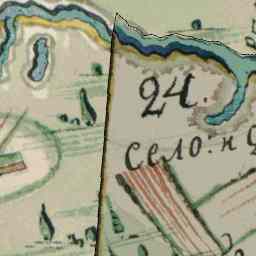 24.
Село: н